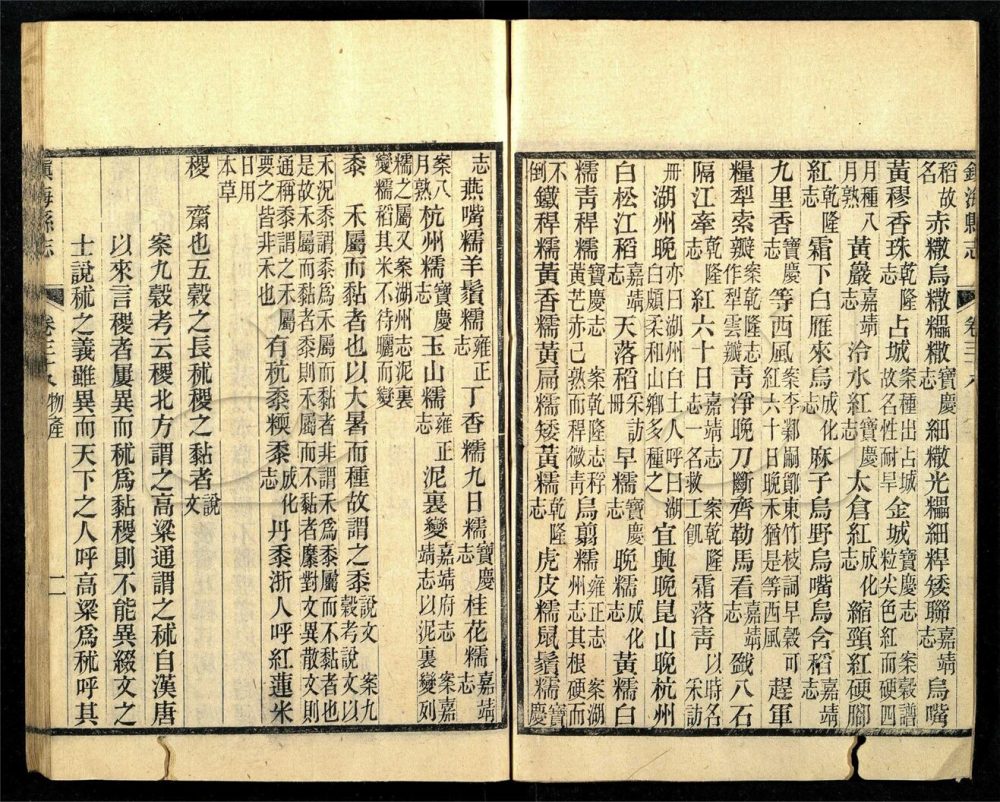 鎮海縣志 卷三十八
稻故名 赤𥻦烏𥻦糯𥻦寶慶志 細𥻦光糯細稈矮聯嘉靖志 烏嘴
黃穋香珠乾隆志 占城案種出占城故名性耐旱 金城寶慶志 案穀譜粒尖色紅而硬四
月種八月熟 黃巖嘉靖志 冷水紅寶慶志 太倉紅成化志 縮頸紅硬腳
紅乾隆志 霜下白雁來烏成化志 厤子烏野烏嘴烏含稻嘉靖志
九里香寶慶志 等西風案李鄴嗣鄮東竹枝詞早穀可紅六十日晚禾猶是等西風 趕軍
糧犁索瓣案乾隆志作犁雲瓣 青淨晚刀斷齊勒馬看嘉靖志 鐵八石
隔江牽乾隆志 紅六十日嘉靖志 案乾隆志一名救工飢 霜落青以時名采訪
冊 湖州晚亦曰湖州白土人呼曰湖白頗柔和山鄉多種之 宜興晚崑山晚杭州
白松江稻嘉靖志 天落稻采訪冊 早糯寶慶志 晚糯成化志 黃糯白
糯青稈糯寶慶志 案乾隆志稃黃芒赤己熟而稈微青 烏翦糯雍正志 案湖州志其根硬而
不倒 鐵稈糯黃香糯黃扁糯矮黃糯乾隆志 虎皮糯鼠鬚糯寶慶
志 燕嘴糯羊鬚糯雍正志 丁香糯九日糯寶慶志 桂花糯嘉靖志
案八月熟 杭州糯寶慶志 玉山糯雍正志 泥裏變嘉靖府志 案嘉靖志以泥裏變列
糯之屬又案湖州志泥裏變糯稻其米不待曬而變
黍 禾屬而黏者也以大暑而種故謂之黍說文 案九穀考說文以
禾況黍謂黍爲禾屬而黏者非謂禾爲黍屬而不黏者也是故禾屬而黏者黍則禾屬而不黏者穈對文異散文則
通稱黍謂之禾屬要之皆非禾也 有秔黍稬黍成化志 丹黍浙人呼紅蓮米
日用本草
稷 齋也五穀之長秫稷之黏者說文
案九穀考云稷北方謂之高粱通謂之秫自漢唐
以來言稷者屢異而秫爲黏稷則不能異綴文之
士說秫之義雖異而天下之人呼高粱爲秫呼其
鎮海縣志 卷三十八 物產 二